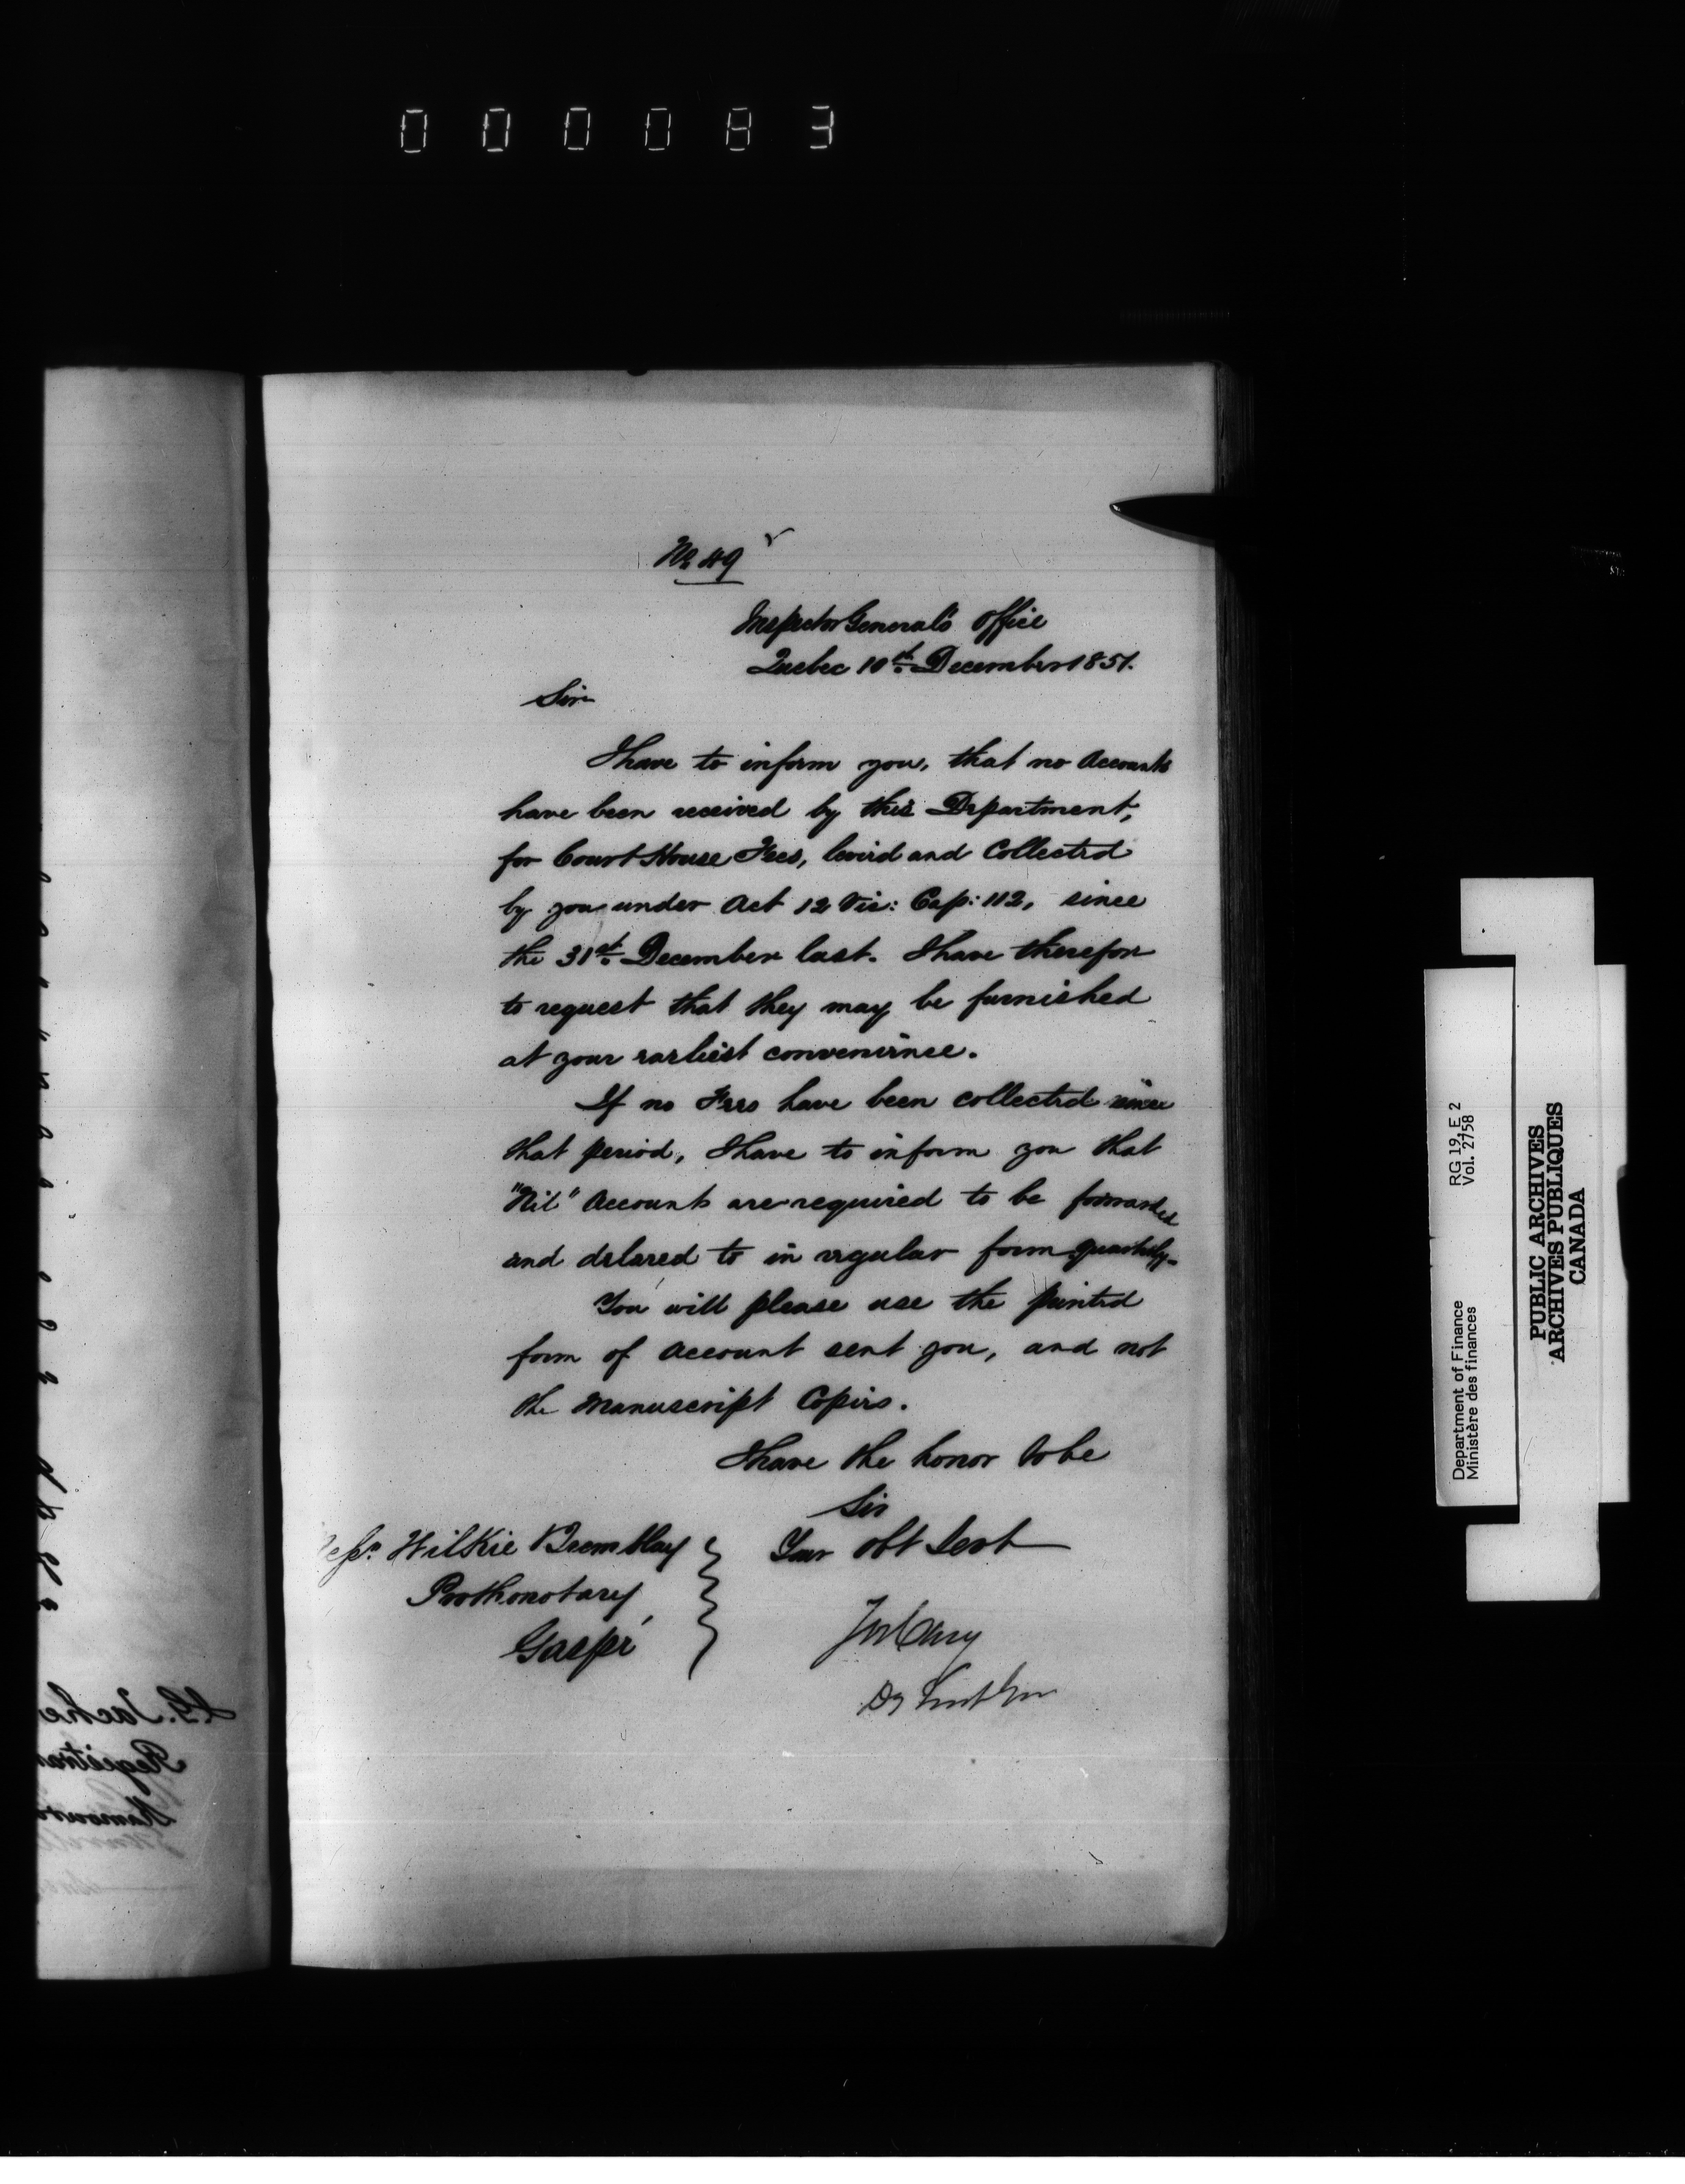 000083
No 49
Inspector General's Office
Quebec 10th December 1851.
Sir
I have to inform you, that no Accounts
have been received by this Department,
for Court House Fees, levied and Collected
by you under Act 12 Vic: Cap: 112, since
the 31st December last. I have therefore
to request that they may be furnished
at your earliest convenience.
If no Fees have been collected since
that period, I have to inform you that
"Nil" Accounts are required to be forwarded
and delared to in regular form quarterly.
You will please use the printed
form of Account sent you, and not
the Manuscript Copies.
I have the honor to be
Sir
Your obt Servt
Messrs Wilkie & Tremblay
Prothonotary
Gaspé
Jos Cary
Dy
L. Tache
Registrar
RG 19, E 2
Vol. 2758
Department of Finance
Ministère des finances
PUBLIC ARCHIVES
ARCHIVES PUBLIQUES
CANADA